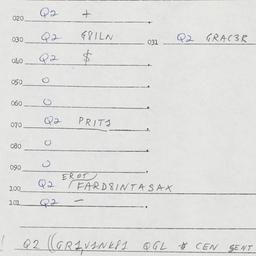 020 Q2 +
030 Q2 G8ILN 031 Q2 GRAC3R
040 Q2 $
050 O
060 O
070 Q2 PRIT1
080 O
090 O
EROT
100 Q2 /FARD8INTASAX
101 Q2 —
Q2 ((GR1,V1NKP1 QGL $ CEN GENT